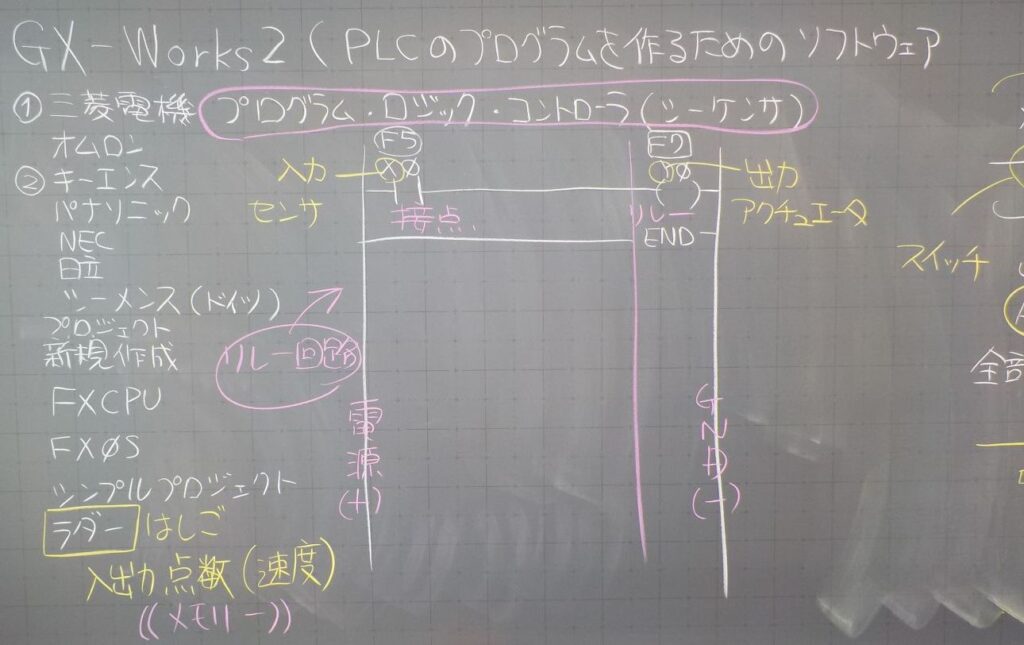 GX-Works2 (PLCのプログラムを作るためのソフトウェア
①三菱電機 プログラム・ロジック・コントローラ(シーケンサ)
オムロン
F5
F7
②キーエンス
入力
X0
Y0
出力
パナソニック
センサ
接点
リレー
アクチュエータ
NEC
END
日立
スイッチ
シーメンス(ドイツ)
プロジェクト
新規作成
リレー回路
全部
FXCPU
電源(+)
GND(-)
FX0S
シンプルプロジェクト
ラダー はしご
入出力点数(速度)
((メモリー))